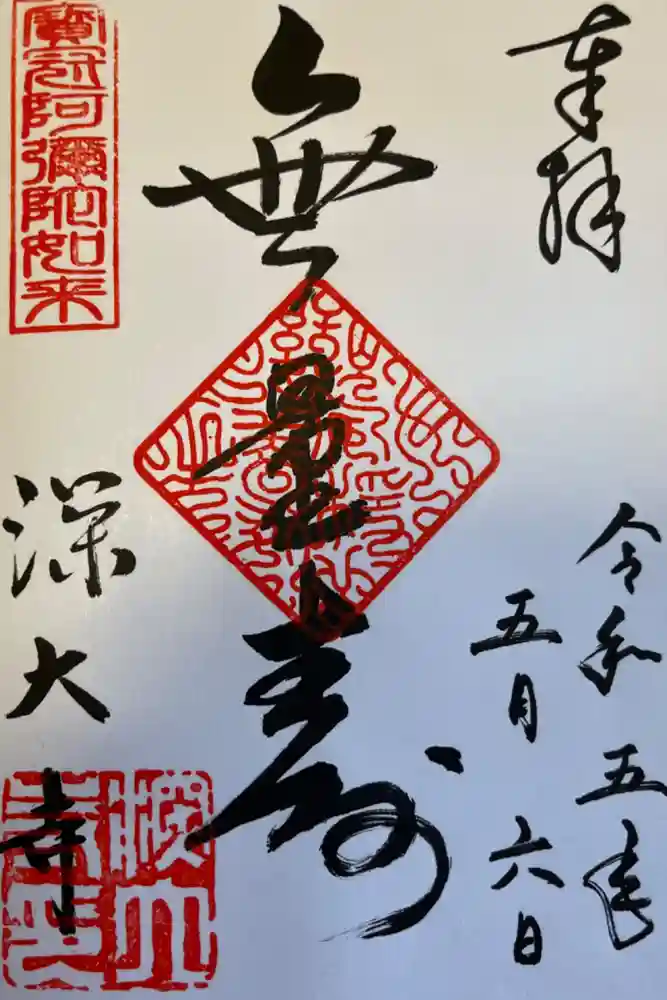 奉拝
令和五年
五月六日
無量壽
寳冠阿彌陀如来
深大寺